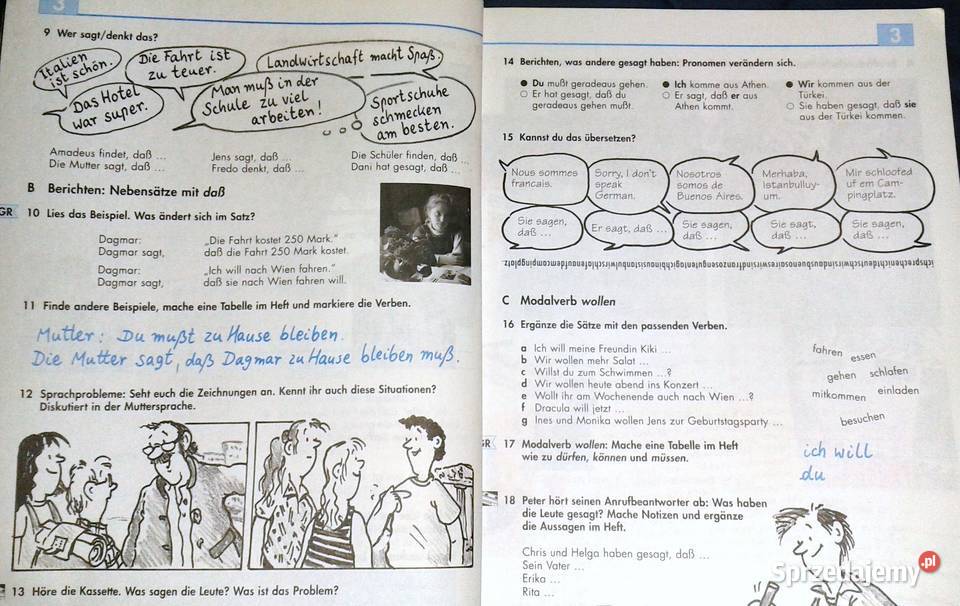 3
9 Wer sagt/denkt das?
Italien
ist schön.
Die Fahrt ist
zu teuer.
Landwirtschaft macht Spaß.
Das Hotel
war super.
Man muß in der
Schule zu viel
arbeiten!
Sportschuhe
schmecken
am besten.
Amadeus findet, daß ...
Die Mutter sagt, daß ...
Jens sagt, daß ...
Fredo denkt, daß ...
Die Schüler finden, daß ...
Dani hat gesagt, daß ...
B Berichten: Nebensätze mit daß
GR
10 Lies das Beispiel. Was ändert sich im Satz?
Dagmar: „Die Fahrt kostet 250 Mark.“
Dagmar sagt, daß die Fahrt 250 Mark kostet.
Dagmar: „Ich will nach Wien fahren.“
Dagmar sagt, daß sie nach Wien fahren will.
11 Finde andere Beispiele, mache eine Tabelle im Heft und markiere die Verben.
Mutter: Du mußt zu Hause bleiben.
Die Mutter sagt, daß Dagmar zu Hause bleiben muß.
12 Sprachprobleme: Seht euch die Zeichnungen an. Kennt ihr auch diese Situationen?
Diskutiert in der Muttersprache.
13 Höre die Kassette. Was sagen die Leute? Was ist das Problem?
3
14 Berichten, was andere gesagt haben: Pronomen verändern sich.
● Du mußt geradeaus gehen.
○ Er hat gesagt, daß du
geradeaus gehen mußt.
● Ich komme aus Athen.
○ Er sagt, daß er aus
Athen kommt.
● Wir kommen aus der
Türkei.
○ Sie haben gesagt, daß sie
aus der Türkei kommen.
15 Kannst du das übersetzen?
Nous sommes
francais.
Sorry, I don't
speak
German.
Nosotros
somos de
Buenos Aires.
Merhaba,
Istanbulluy-
um.
Mir schloofed
uf em Cam-
pingplatz.
Sie sagen,
daß ...
Er sagt, daß ...
Sie sagen,
daß ...
Sie sagt,
daß ...
Sie sagen,
daß ...
C Modalverb wollen
16 Ergänze die Sätze mit den passenden Verben.
a Ich will meine Freundin Kiki ...
b Wir wollen mehr Salat ...
c Willst du zum Schwimmen ...?
d Wir wollen heute abend ins Konzert ...
e Wollt ihr am Wochenende auch nach Wien ...?
f Dracula will jetzt ...
g Ines und Monika wollen Jens zur Geburtstagsparty ...
fahren
essen
gehen
schlafen
mitkommen
einladen
besuchen
GR
17 Modalverb wollen: Mache eine Tabelle im Heft
wie zu dürfen, können und müssen.
ich will
du
18 Peter hört seinen Anrufbeantworter ab: Was haben
die Leute gesagt? Mache Notizen und ergänze
die Aussagen im Heft.
Chris und Helga haben gesagt, daß ...
Sein Vater ...
Erika ...
Rita ...
Sprzedajemy.pl